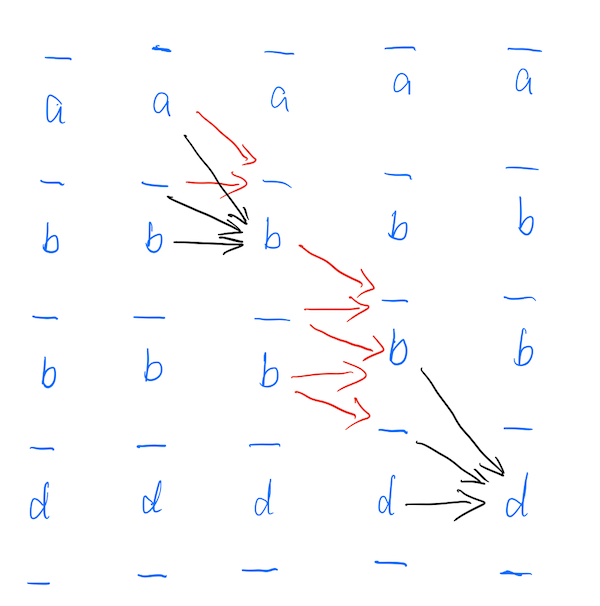 _ _ _ _ _
a a a a a
_ _ _ _ _
b b b b b
_ _ _ _ _
b b b b b
_ _ _ _ _
d d d d d
_ _ _ _ _